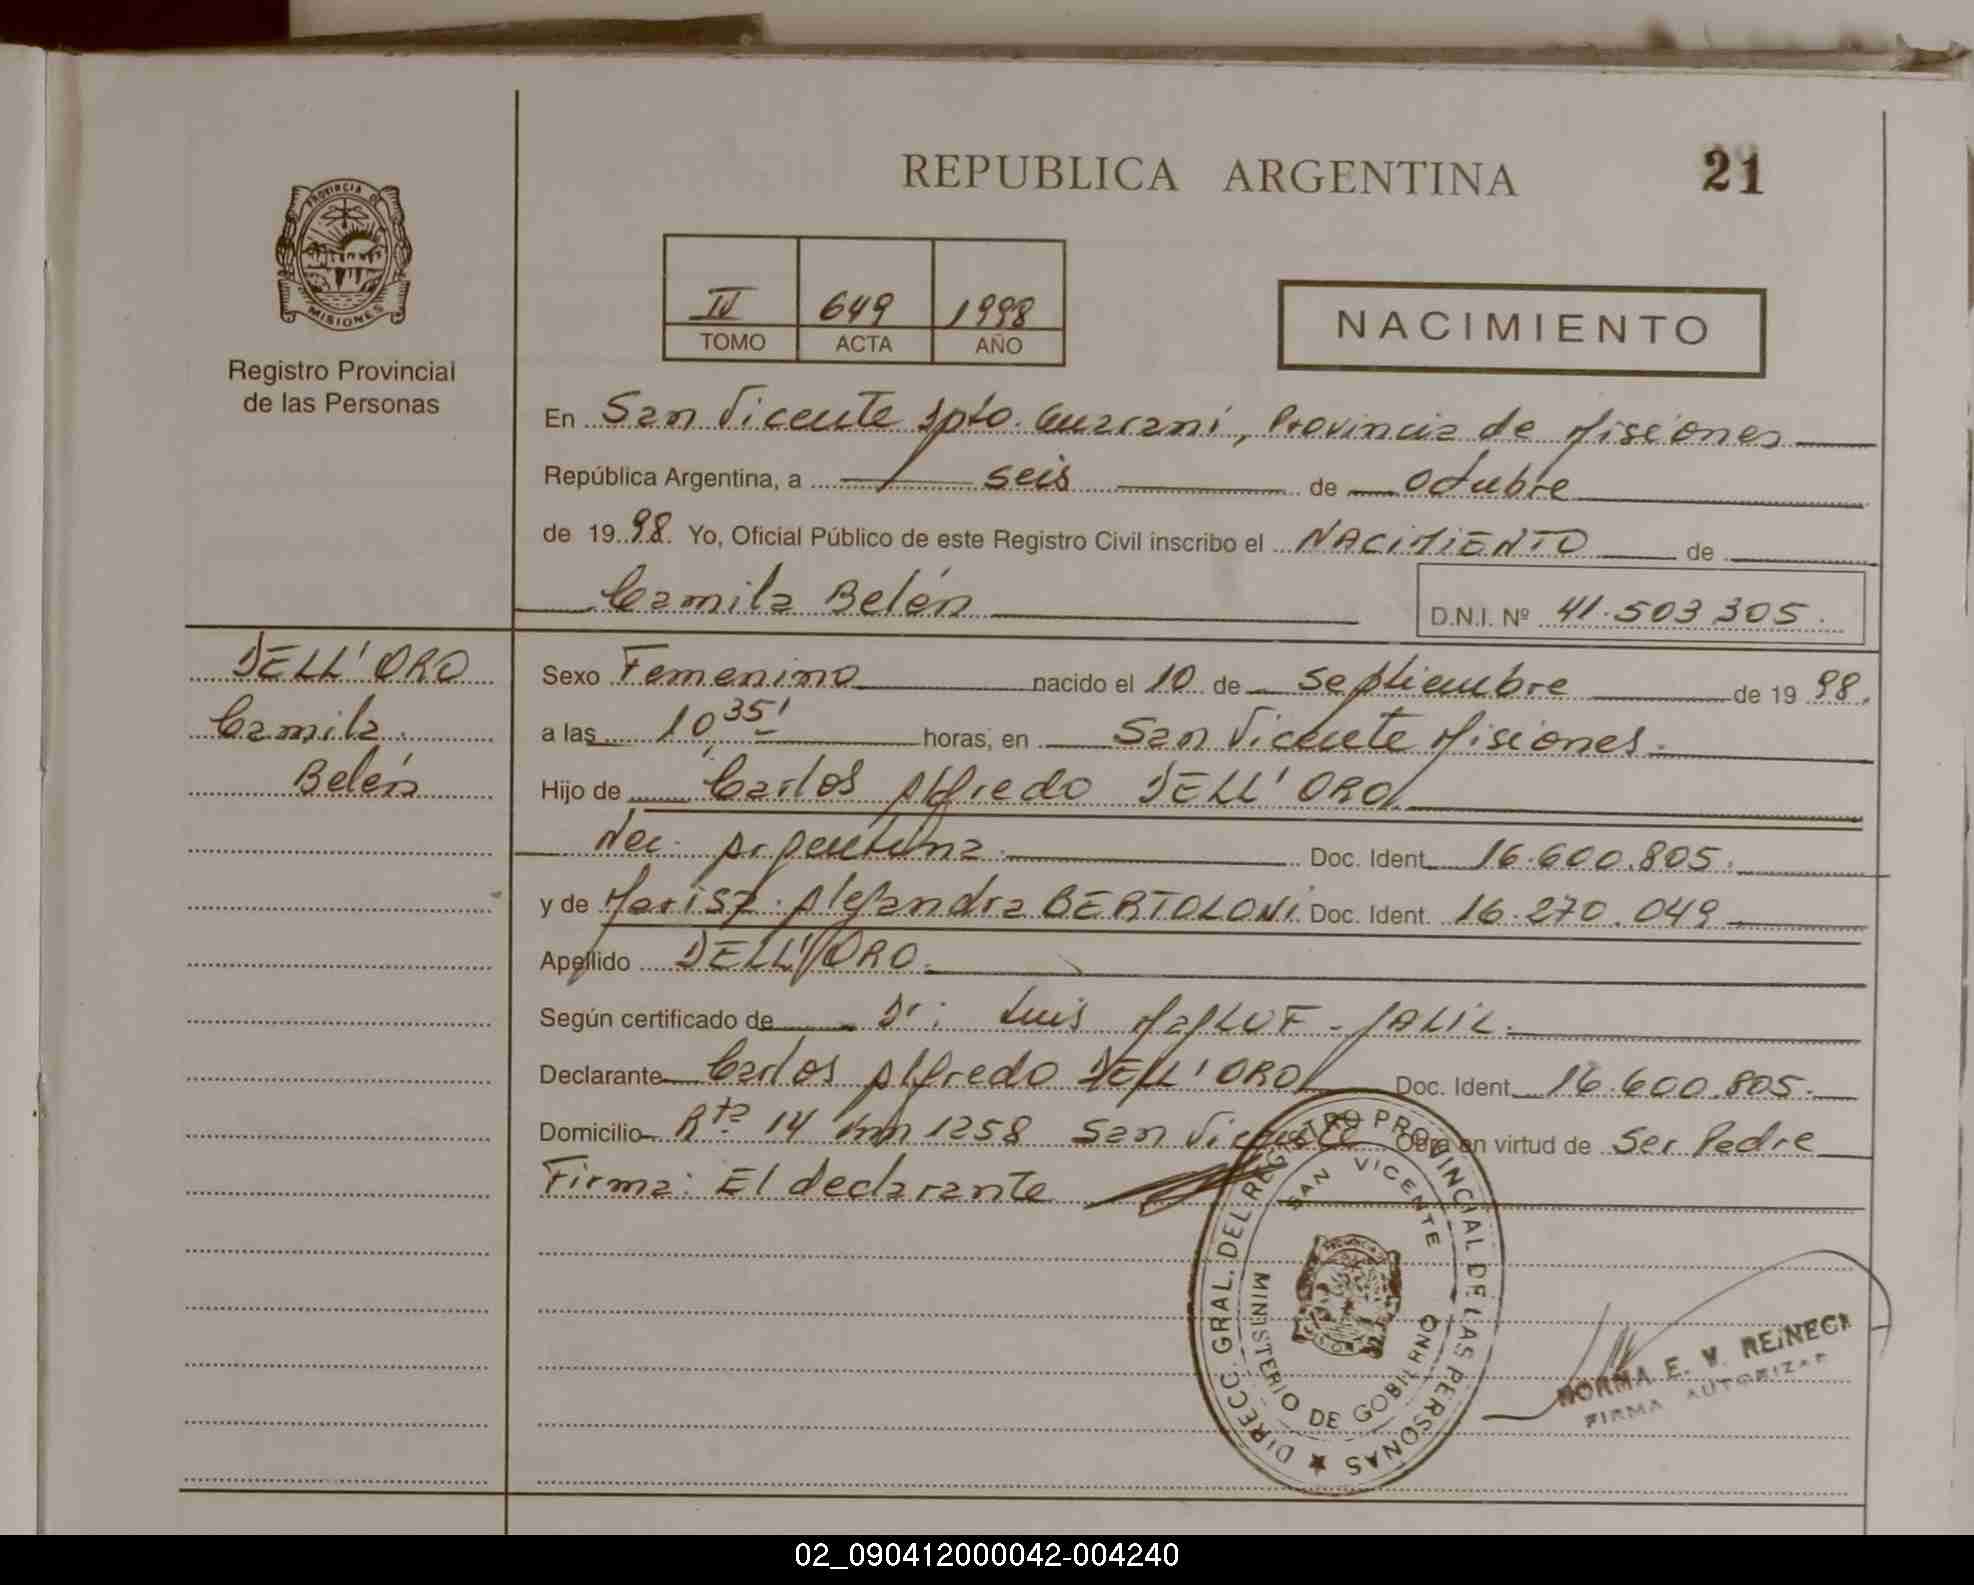 REPUBLICA ARGENTINA
21
PROVINCIA DE
MISIONES
Registro Provincial
de las Personas
IV 649 1998
TOMO ACTA AÑO
NACIMIENTO
En San Vicente Dpto. Guaraní, Provincia de Misiones
República Argentina, a seis de Octubre
de 1998. Yo, Oficial Público de este Registro Civil inscribo el NACIMIENTO de
Camila Belén
D.N.I. Nº 41.503.305.
DELL'ORO
Camila
Belén
Sexo Femenino nacido el 10 de Septiembre de 1998.
a las 10,35' horas, en San Vicente Misiones.
Hijo de Carlos Alfredo DELL'ORO
Nac. Argentina. Doc. Ident. 16.600.805.
y de Marisa Alejandra BERTOLONI. Doc. Ident. 16.270.049
Apellido DELL'ORO.
Según certificado de Dr: Luis JALIL.
Declarante Carlos Alfredo DELL'ORO Doc. Ident. 16.600.805.
Domicilio Rta 14 km 1258 San Vicente Obra en virtud de Ser Padre
Firma: El declarante
DIRECC. GRAL. DEL REGISTRO PROVINCIAL DE LAS PERSONAS
SAN VICENTE
MINISTERIO DE GOBIERNO
NORMA E. W.
FIRMA
02_090412000042-004240